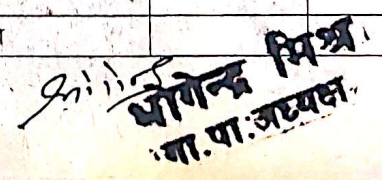 योगेन्द्र मिश्र
गा.पा.अध्यक्ष